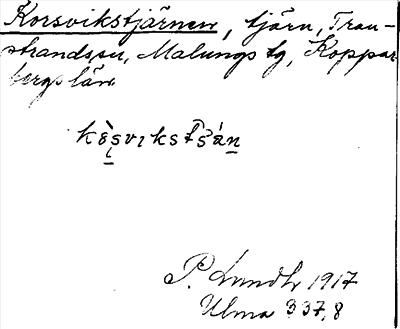 Korsvikstjärnen, tjärn, Tran-
strands sn, Malungs tg, Koppar
bergs län
P. Lundh 1917
Ulma 337,8